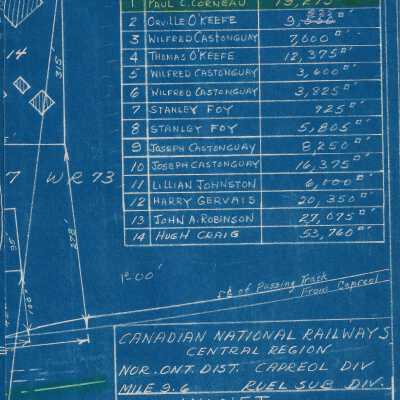 1 PAUL C. CORNEAU 13,275
2 ORVILLE O'KEEFE
3 WILFRED CASTONGUAY 7,000 □'
4 THOMAS O'KEEFE 12,375 □'
5 WILFRED CASTONGUAY 3,600 □'
6 WILFRED CASTONGUAY 3,825 □'
7 STANLEY FOY 925 □'
8 STANLEY FOY 5,805 □'
9 JOSEPH CASTONGUAY 8,250 □'
10 JOSEPH CASTONGUAY 16,375 □'
11 LILLIAN JOHNSTON 6,100 □'
12 HARRY GERVAIS 20,350 □'
13 JOHN A. ROBINSON 27,075 □'
14 HUGH CRAIG 53,760 □'
14
315'
7
WR 73
278'
95'
Passing Track
From Capreol
CANADIAN NATIONAL RAILWAYS
CENTRAL REGION
NOR. ONT. DIST. CAPREOL DIV
MILE 9.6 RUEL SUB DIV.